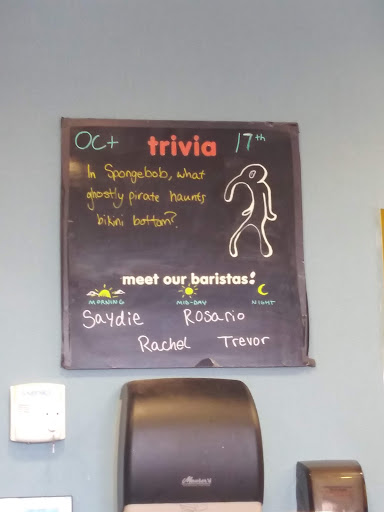 Oct trivia 17th
In Spongebob, what
ghostly pirate haunts
bikini bottom?
meet our baristas!
MORNING MID-DAY NIGHT
Saydie Rosario
Rachel Trevor